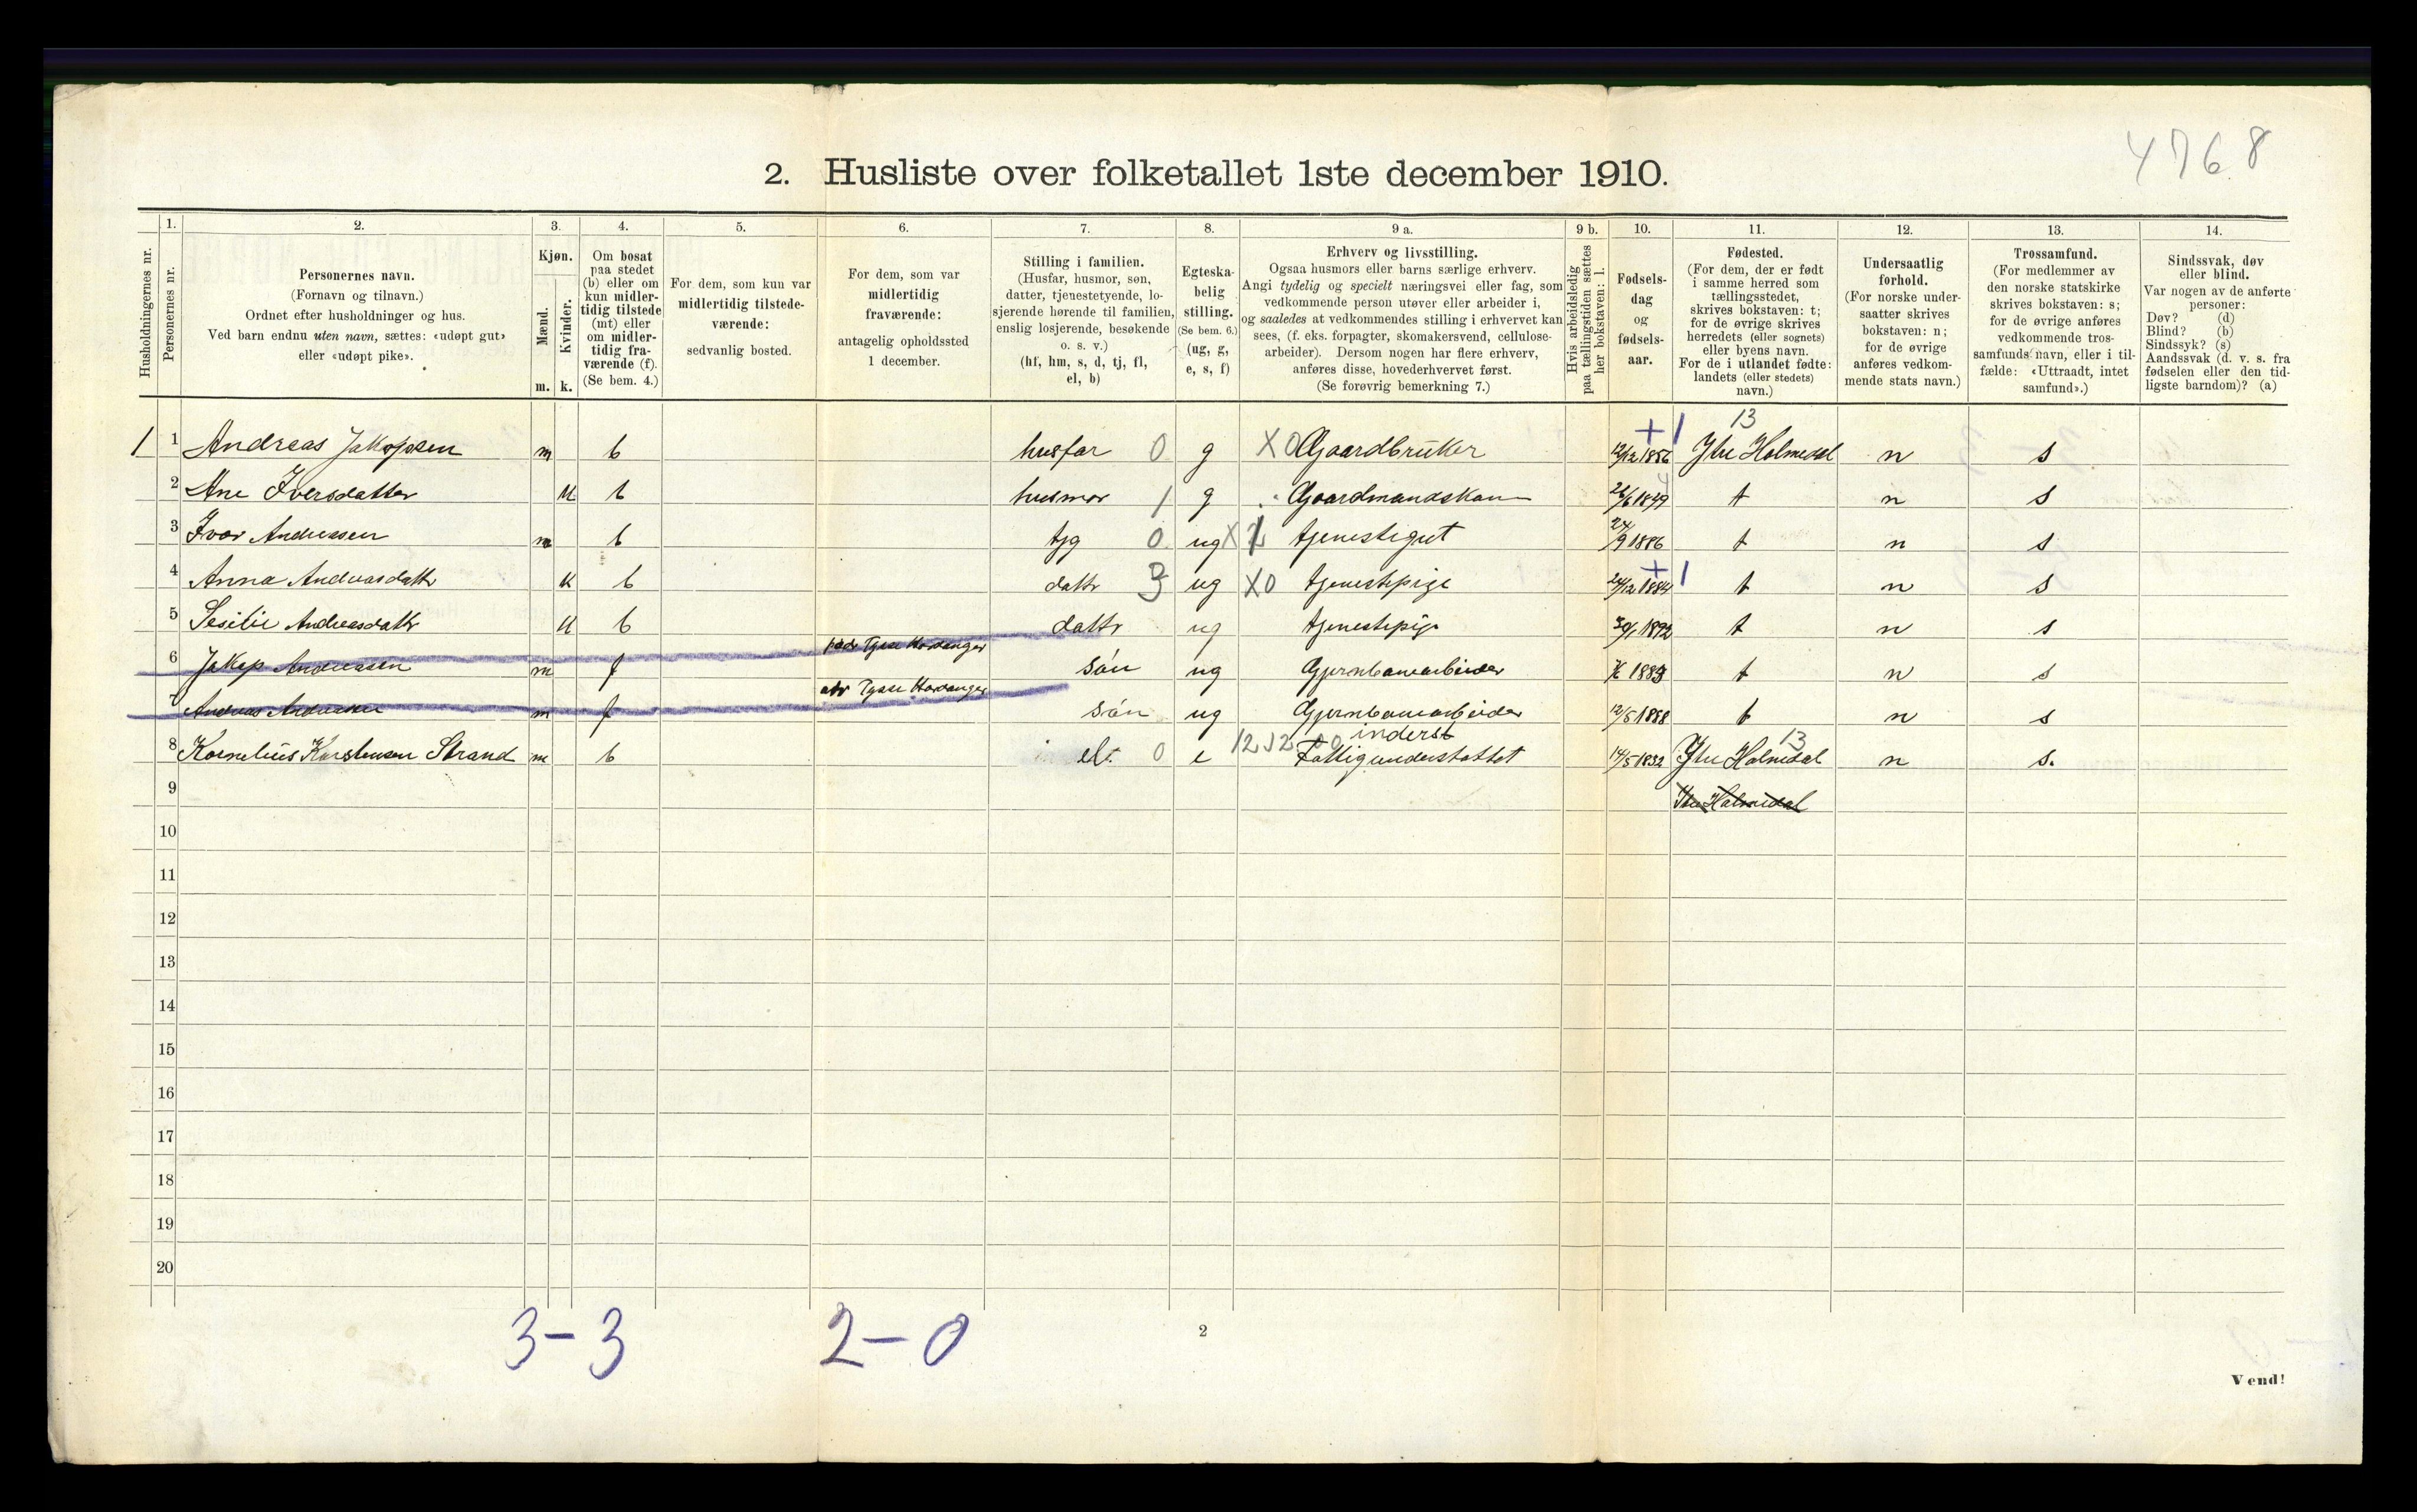 4768
2. Husliste over folketallet 1ste december 1910.
Husholdningernes nr.
1.
Personernes nr.
2.
Personernes navn.
(Fornavn og tilnavn.)
Ordnet efter husholdninger og hus.
Ved barn endnu uten navn, sættes: «udøpt gut»
eller «udøpt pike».
3.
Kjøn.
Mænd.
Kvinder.
m. k.
4.
Om bosat
paa stedet
(b) eller om
kun midler-
tidig tilstede
(mt) eller
om midler-
tidig fra-
værende (f).
(Se bem. 4.)
5.
For dem, som kun var
midlertidig tilstede-
værende:
sedvanlig bosted.
6.
For dem, som var
midlertidig
fraværende:
antagelig opholdssted
1 december.
7.
Stilling i familien.
(Husfar, husmor, søn,
datter, tjenestetyende, lo-
sjerende hørende til familien,
enslig losjerende, besøkende
o. s. v.)
(hf, hm, s, d, tj, fl,
el, b)
8.
Egteska-
belig
stilling.
(Se bem. 6.)
(ug, g,
e, s, f)
9 a.
Erhverv og livsstilling.
Ogsaa husmors eller barns særlige erhverv.
Angi tydelig og specielt næringsvei eller fag, som
vedkommende person utøver eller arbeider i,
og saaledes at vedkommendes stilling i erhvervet kan
sees, (f. eks. forpagter, skomakersvend, cellulose-
arbeider). Dersom nogen har flere erhverv,
anføres disse, hovederhvervet først.
(Se forøvrig bemerkning 7.)
9 b.
Hvis arbeidsledig
paa tællingstiden sættes
her bokstaven: l.
10.
Fødsels-
dag
og
fødsels-
aar.
11.
Fødested.
(For dem, der er født
i samme herred som
tællingsstedet,
skrives bokstaven: t;
for de øvrige skrives
herredets (eller sognets)
eller byens navn.
For de i utlandet fødte:
landets (eller stedets)
navn.)
12.
Undersaatlig
forhold.
(For norske under-
saatter skrives
bokstaven: n;
for de øvrige
anføres vedkom-
mende stats navn.)
13.
Trossamfund.
(For medlemmer av
den norske statskirke
skrives bokstaven: s;
for de øvrige anføres
vedkommende tros-
samfunds navn, eller i til-
fælde: «Uttraadt, intet
samfund».)
14.
Sindssvak, døv
eller blind.
Var nogen av de anførte
personer:
Døv? (d)
Blind? (b)
Sindssyk? (s)
Aandssvak (d. v. s. fra
fødselen eller den tid-
ligste barndom)? (a)
+1 13
1 1 Andreas Jakopsen m b husfar 0 g X0 Gaardbruker 12/12 1856 Ytre Holmedal n s
2 Ane Iversdatter k b husmor 1 g Gaardmandskone 26/6 1849 t n s
3 Ivar Andreasen m b tjg 0 ug X tjenestegut 24/9 1886 t n s
+1
4 Anna Andreasdatr k b datr 3 ug X0 tjenestepige 24/12 1884 t n s
5 Sesilie Andreasdatr k b datr ug tjenestepige 1892 t n s
Tysse Hardanger
6 Jakop Andreasen m f sön ug Gjernbanearbeider 1883 t n s
Tysse Hardanger
7 Andreas Andreasen m f sön ug Gjernbanearbeider 12/5 1888 t n s
inderst 13
8 Kornelius Karstensen Strand m b el. 0 e 12.12 00 Fattigunderstøttet 14/5 1832 Ytre Holmedal n s.
9 Ytre Holmedal
10
11
12
13
14
15
16
17
18
19
20
3-3 2-0
2
Vend!